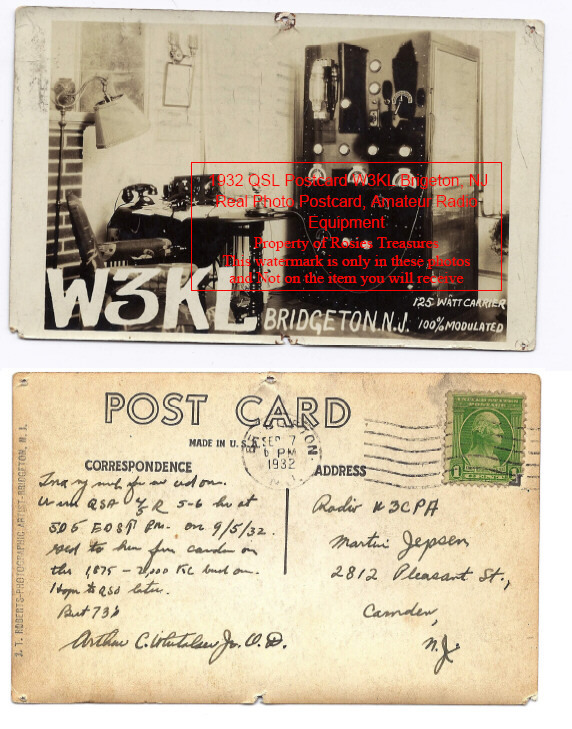 1932 QSL Postcard W3KL Brigeton, NJ
Real Photo Postcard, Amateur Radio
Equipment
Property of Rosies Treasures
This watermark is only in these photos
and Not on the item you will receive
W3KL BRIDGETON. N.J.
125 WATT CARRIER
100% MODULATED
POST CARD
MADE IN U.S.A.
SEP 7
6 PM
1932
UNITED STATES
POSTAGE
CORRESPONDENCE
ADDRESS
QSA R 5-6 at
505 EDST Pm. on 9/5/32.
to hear from camden on
the 1,875 - 2,000 KC band
Hope to QSO later.
Best 73s
Arthur C. Jr. O.D.
Radio W3CPA
Martin Jepsen
2812 Pleasant St.,
Camden,
N.J.
J. T. ROBERTS-PHOTOGRAPHIC ARTIST-BRIDGETON, N. J.